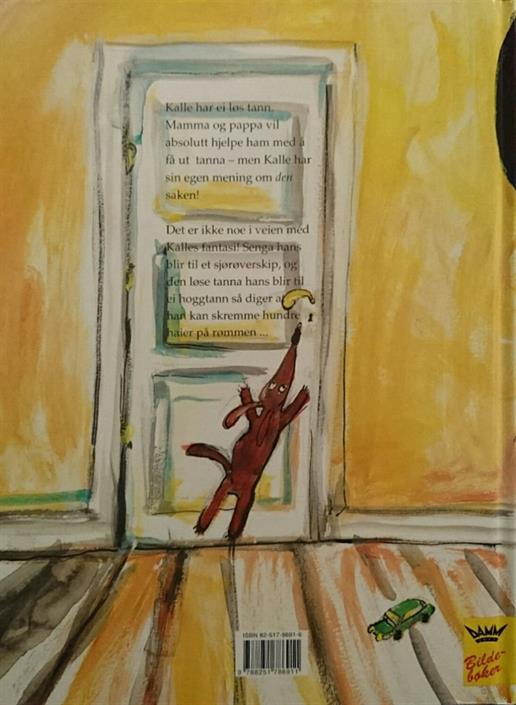 Kalle har ei løs tann.
Mamma og pappa vil
absolutt hjelpe ham med å
få ut tanna – men Kalle har
sin egen mening om den
saken!
Det er ikke noe i veien med
Kalles fantasi! Senga hans
blir til et sjørøverskip, og
den løse tanna hans blir til
ei hoggtann så diger at
han kan skremme hundre
haier på rømmen ...
ISBN 82-517-8691-6
9 788251 786911
DAMM
Bilde-
bøker